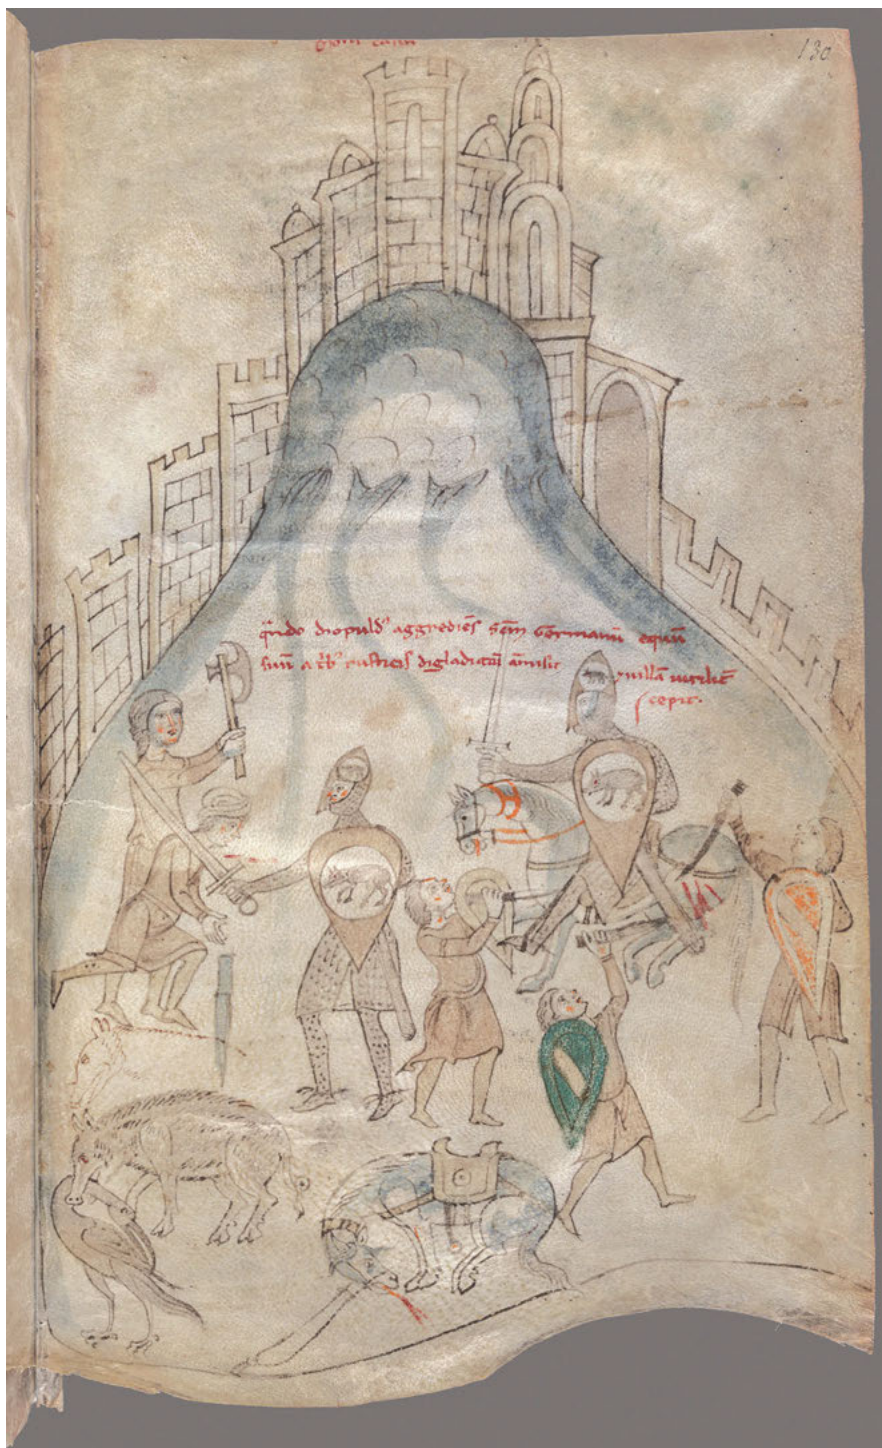 130
q̄ndo diopuld⁹ aggrediēs sc̄m Germanū equū
suū a t͛b⁹ rusticis digladiatū amisit ⁊ villā virilit͛
cepit.